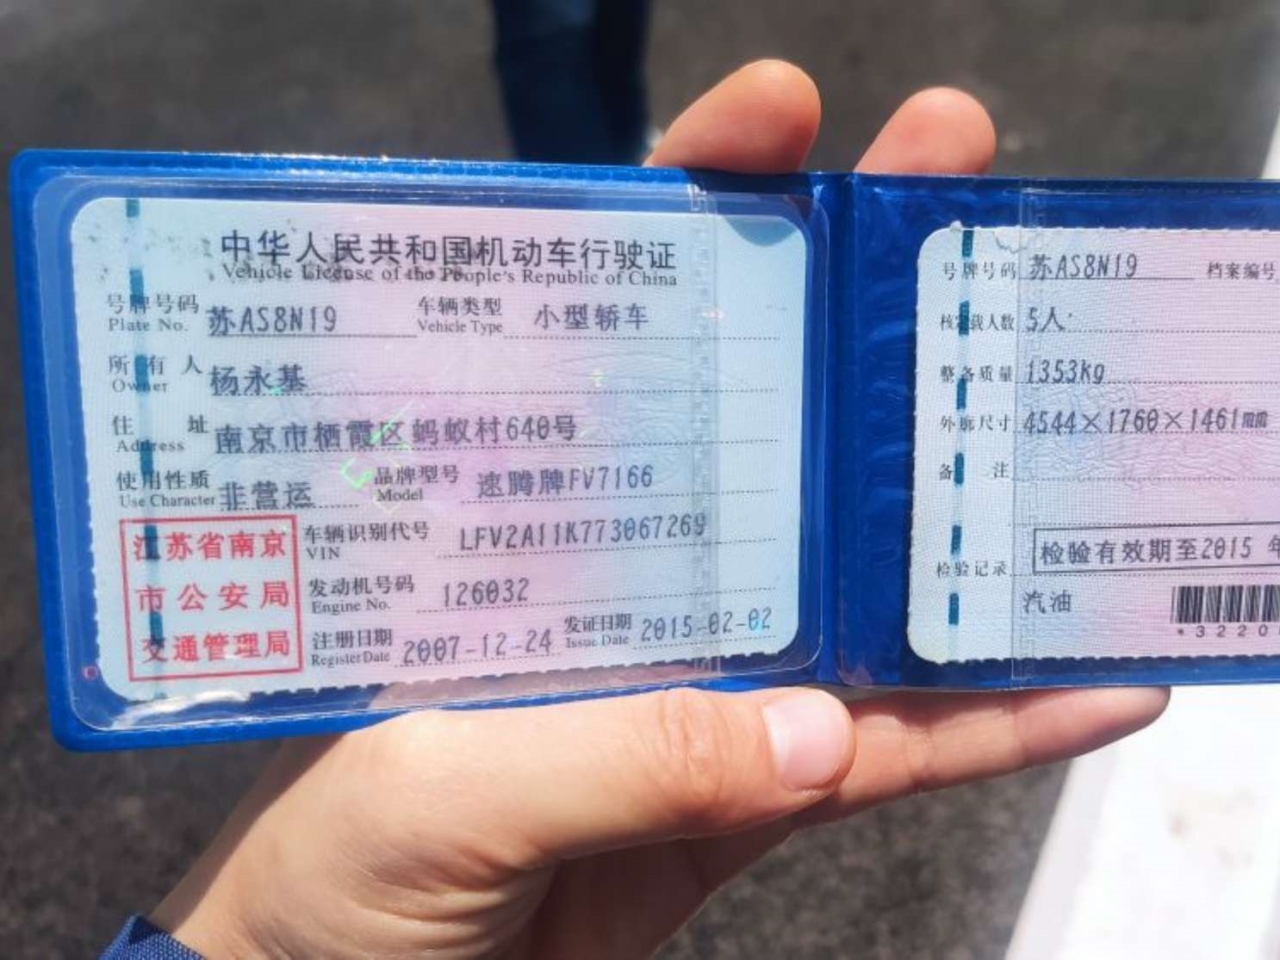 中华人民共和国机动车行驶证
Vehicle License of the People's Republic of China
号牌号码 苏AS8N19 车辆类型 小型轿车
Plate No. Vehicle Type
所有人 杨永基
Owner
住址 南京市栖霞区蚂蚁村640号
Address
使用性质 非营运 品牌型号 速腾牌FV7166
Use Character Model
江苏省南京
市公安局
交通管理局
车辆识别代号 LFV2A11K773067269
VIN
发动机号码 126032
Engine No.
注册日期 2007-12-24 发证日期 2015-02-02
Register Date Issue Date
号牌号码 苏AS8N19 档案编号
核定载人数 5人
整备质量 1353kg
外廓尺寸 4544×1760×1461mm
备注
检验有效期至2015 年
检验记录
汽油
*3220